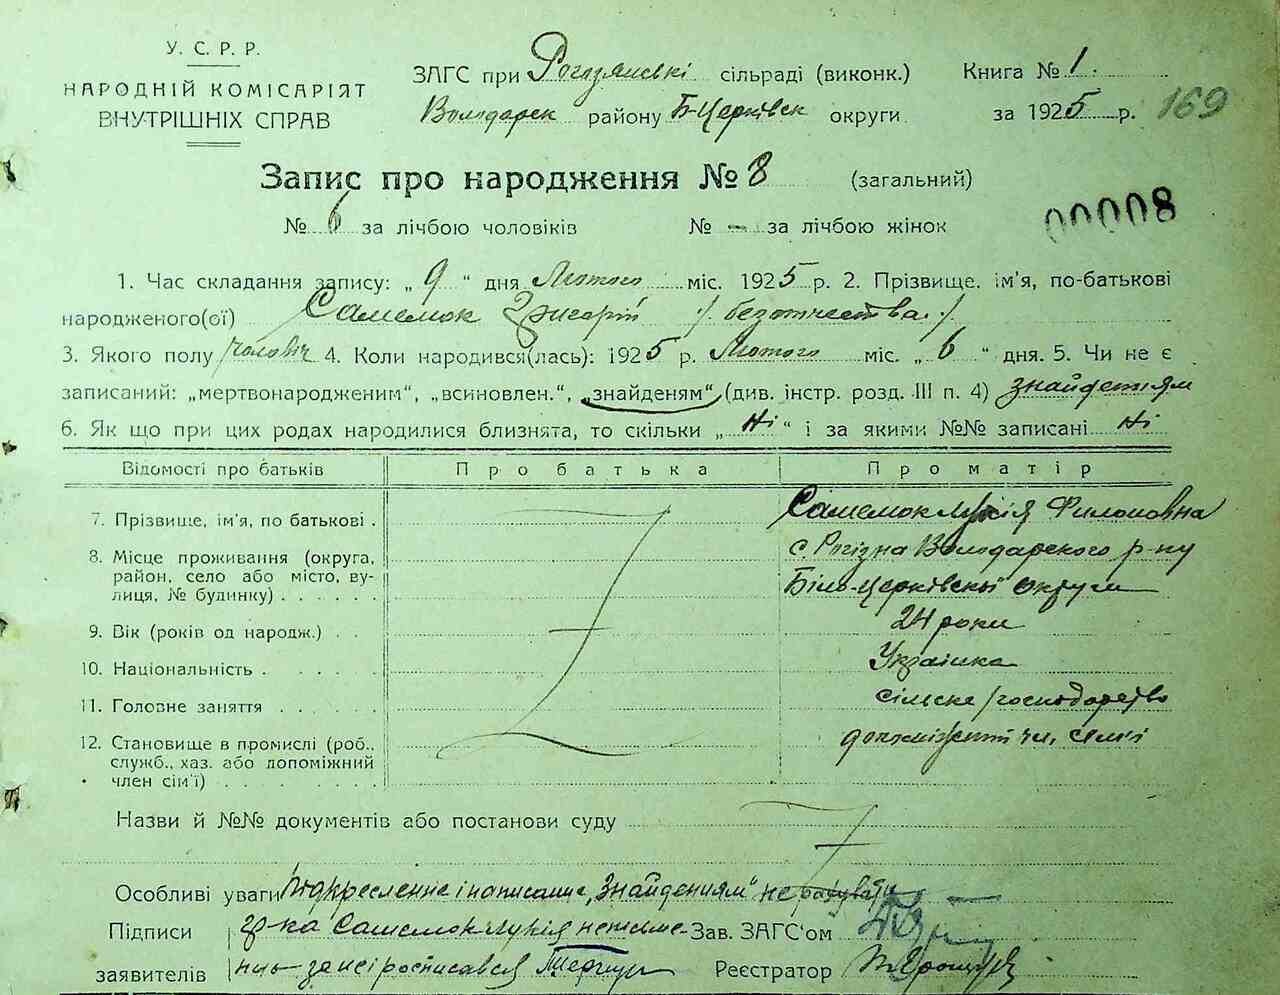 У. С. Р. Р.
НАРОДНІЙ КОМІСАРІЯТ
ВНУТРІШНІХ СПРАВ
ЗАГС при Рогізянські сільраді (виконк.) Книга № 1.
Володарск району Б-Церківск округи за 1925 р. 169
Запис про народження № 8 (загальний)
№ 6 за лічбою чоловіків № - за лічбою жінок
00008
1. Час складання запису: „ 9 “ дня Лютого міс. 1925 р. 2. Прізвище. ім'я, по-батькові
народженого(ої) Самемок /. безотчества ./
3. Якого полу чоловіч 4. Коли народився(лась): 1925 р. Лютого міс. „ 6 “ дня. 5. Чи не є
записаний: „мертвонародженим“, „всиновлен.“, „знайденям“ (див. інстр. розд. III п. 4) знайденіям
6. Як що при цих родах народилися близнята, то скільки „ Ні “ і за якими №№ записані Ні
Відомості про батьків Про батька Про матір
7. Прізвище, ім'я, по батькові . Самемок Лукія Филоповна
8. Місце проживання (округа, район, село або місто, вулиця, № будинку) . . . . . с. Рогізна Володарского р-ну
Біло-Церківскої округи
9. Вік (років од народж.) . . 24 роки
10. Національність . . . . Українка
11. Головне заняття . . . . сільске господарство
12. Становище в промислі (роб., служб., хаз. або допоміжний член сім'ї) . . . . . . . чл. сімї
Назви й №№ документів або постанови суду
Особливі уваги Підкресленне і написанне „Знайдениям“ не рахувати
Підписи гр-ка Самемок Лукія неписьме- Зав. ЗАГС'ом
заявителів нна- за неі росписався Реєстратор